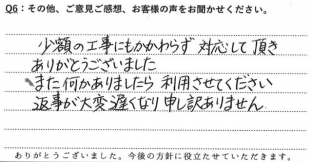 Q6:その他、ご意見ご感想、お客様の声をお聞かせください。
少額の工事にもかかわらず対応して頂き
ありがとうございました
また何かありましたら利用させてください
返事が大変遅くなり申し訳ありません
ありがとうございました。今後の方針に役立たせていただきます。